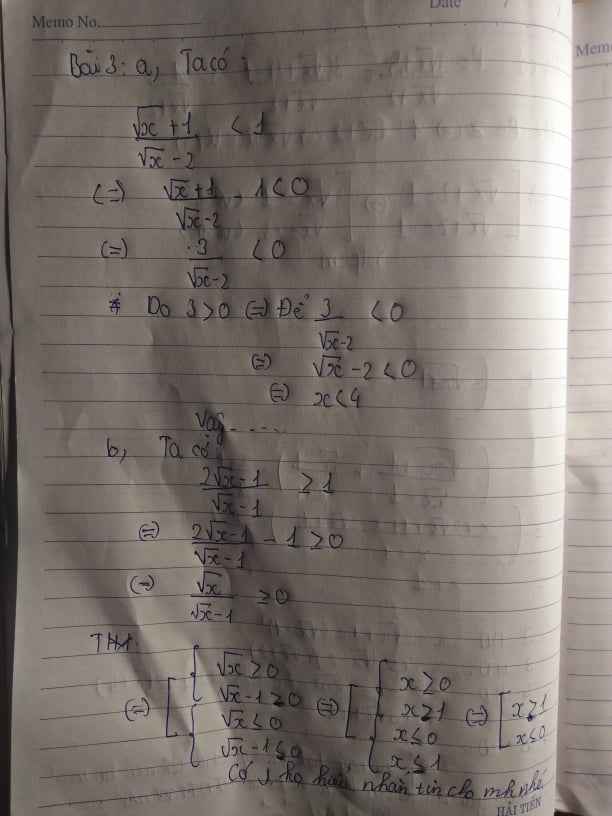 Memo No.
Date /
Memo
Bài 3: a, Ta có:
√x + 1 / √x - 2 < 1
(=) √x + 1 / √x - 2 - 1 < 0
(=) 3 / √x - 2 < 0
* Do 3 > 0 (=) Để 3 / √x - 2 < 0
(=) √x - 2 < 0
(=) x < 4
Vậy ....
b, Ta có:
2√x - 1 / √x - 1 ≥ 1
(=) 2√x - 1 / √x - 1 - 1 ≥ 0
(=) √x / √x - 1 ≥ 0
TH1:
(=) [ { √x ≥ 0 (=) [ { x ≥ 0 (=) [ x ≥ 1
√x - 1 ≥ 0 x ≥ 1 x ≤ 0
{ √x ≤ 0 { x ≤ 0
√x - 1 ≤ 0 x ≤ 1
Có j ko hiểu nhắn tin cho mh nhé
HẢI TIẾN